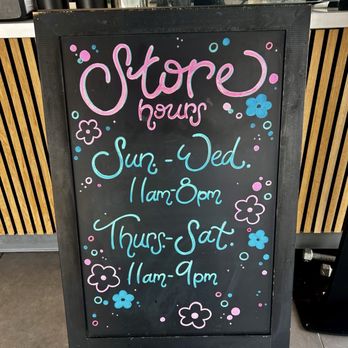 Store
hours
Sun-Wed.
11am-8pm
Thurs-Sat.
11am-9pm